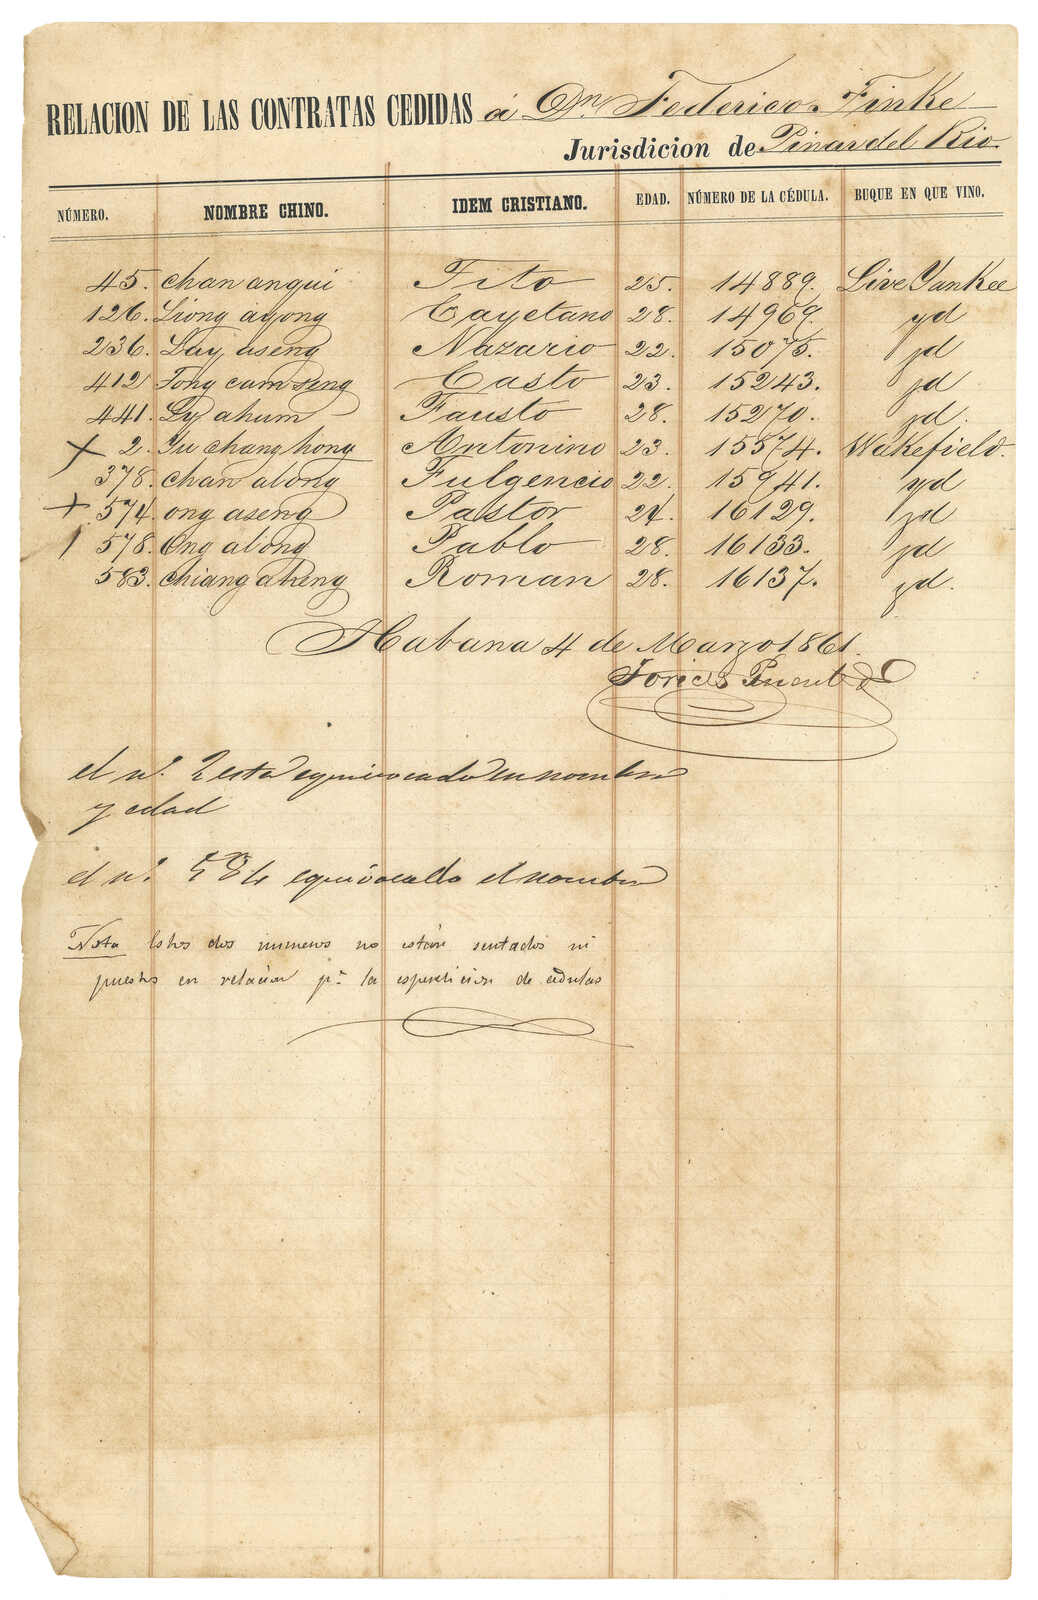 RELACION DE LAS CONTRATAS CEDIDAS á Dn. Federico Finke
Jurisdicion de Pinar del Rio.
NÚMERO. NOMBRE CHINO. IDEM CRISTIANO. EDAD. NÚMERO DE LA CÉDULA. BUQUE EN QUE VINO.
45. chan angui Tito 25. 14889. Live Yankee
126. Liong ayong Cayetano 28. 14969. yd
236. Lay aseng Nazario 22. 15075. yd
412 Tong cum seng Casto 23. 15243. yd
441. Ly ahum Fausto 28. 15270. yd.
x 2. Yu chang hong Antonino 23. 15574. Wakefield.
378. chan along Fulgencio 22. 15941. yd
+ 574. ong aseng Pastor 24. 16129. yd
578. Ong along Pablo 28. 16133. yd
583. chiang akeng Roman 28. 16137. yd.
Habana 4 de Marzo 1861.
Torices Puente
el nº. 2 esta equivocado en nombre
y edad
el nº. equivocado el nombre
Nota Estos dos numeros no están sentados ni
puestos en relacion pª. la espedicion de cedulas